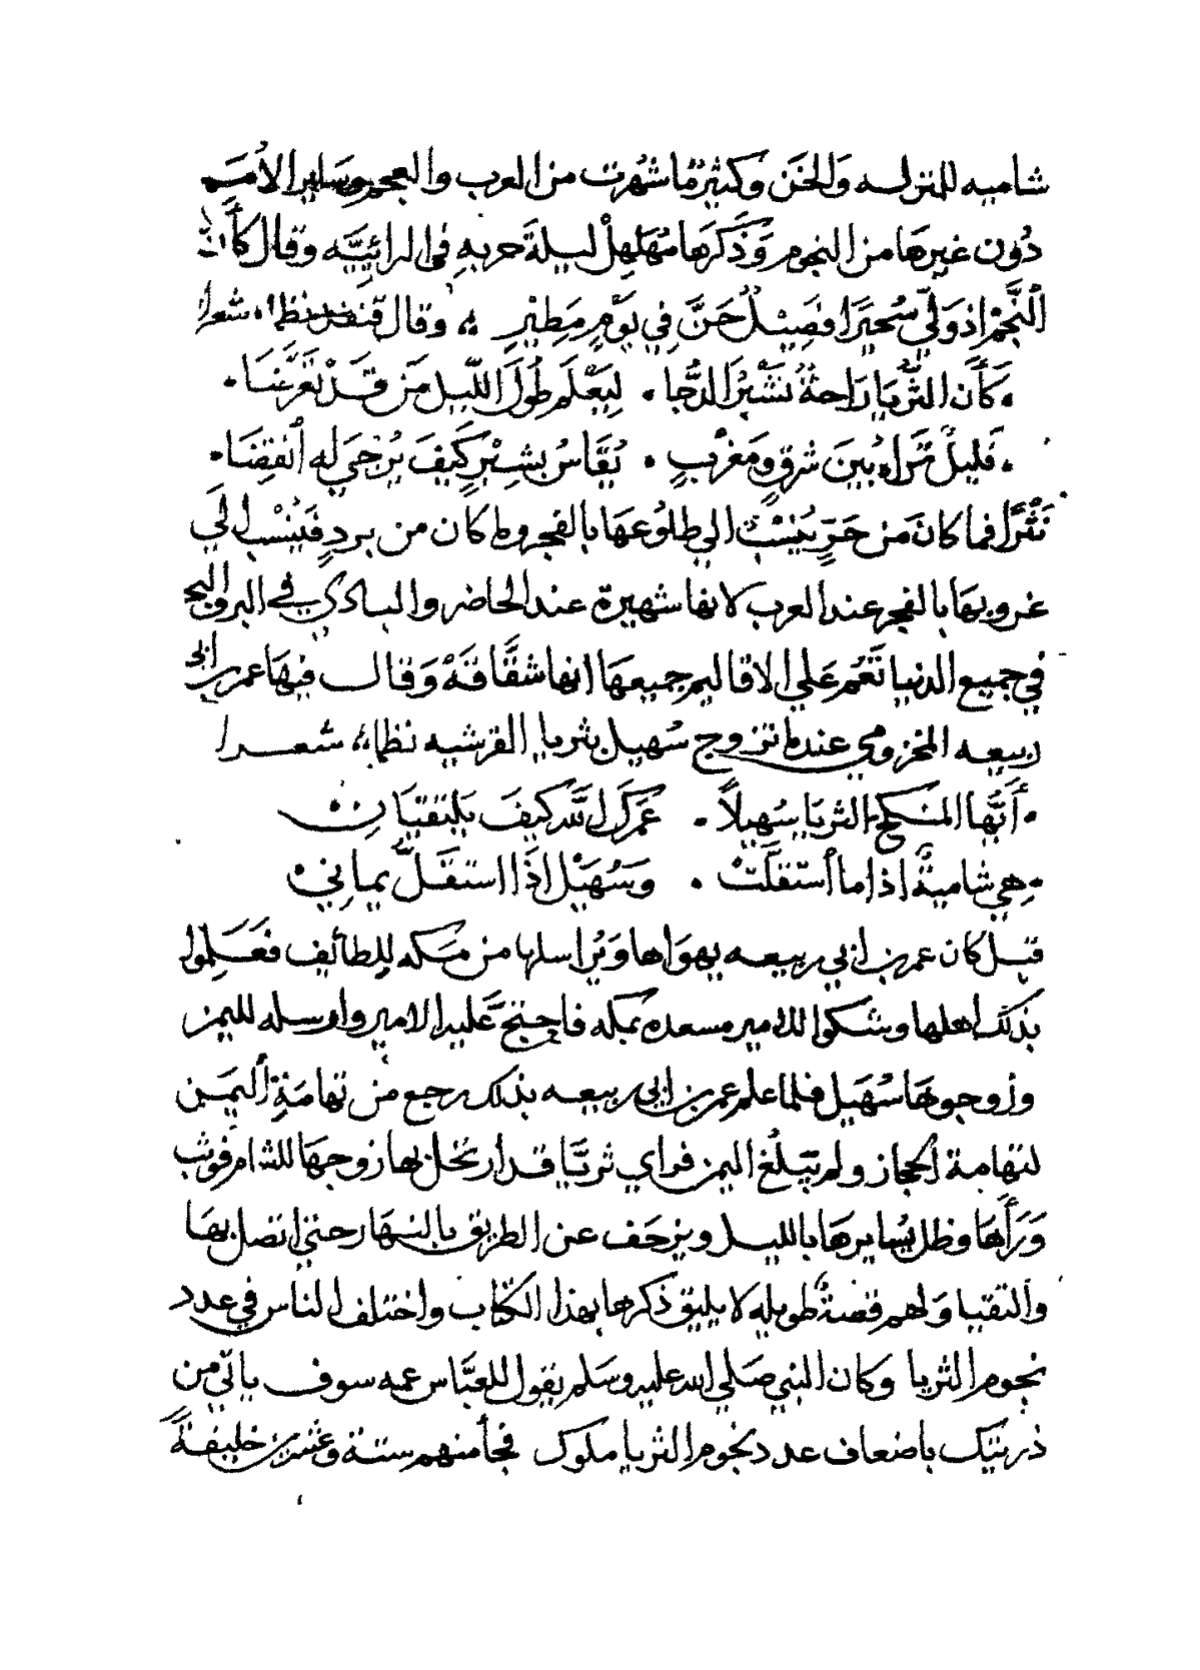 شاميه المنزله والخَن وكثير ما شُهرت من العرب والعجم وساير الأمَم
دُون غيرها من النجوم وَذَكرَها مُهَلهِلْ ليلةَ حربهِ في الرائِيَّه وقال كأنّ
ٱلنَّجمْ اذ وَليّ سُحَيرًا فَصِيلٌ حَنَّ فِي يَوْمٍ مَطِيْرِ ؛ وقال نظما، شعرا
كَأَن الثُّريَا رَاحةٌ تُشْبْرُ الدُّجا ٠ لِيَعْلَم طُولَ اللّيل مَن قَدْ تَعَرَّضَا ٠
٠ فَليلٌ تَراه بَينَ شرقٍ ومَغرْبٍ ٠ يُقَاسُ بشِبْرٍ كَيفَ يُرْجَي له ٱنقِضَا ٠
نَثْرًا فما كان مَن حَرّ يُنِسْبُ الي طلُوعهَا بالفجر وما كان من بردٍ فَيُنسْب الي
غروبهَا بالفجر عند العرب لانها شهيرة عند الحاضر والبادي في البر والبحر
في جميع الدنيا تَعُم عَلي الاقاليم جميعهَا انها شقَّاقَهْ وَقال فيهَا عمر بن ابي
ربيعه المخزومي عندما تزوج سُهيل بثريا القرشيه نظما؛ شعرا
٠ أَيَّها المنكح الثريَا سُهَيلاً ٠ عَمرَكَ اللَّه كيفَ يَلتقيَانِ ٠
٠ هِي شاميةٌ اذا ما ٱستقلَّتْ ٠ وَسُهَيْل اذَا استقَلَّ يمانِيْ
قيل كان عمر بن ابي ربيعه يهوَاها وَيُراسلها من مَكه للطائِف فعَلِموا
بذلك اهلها وشكوا للامير مسعده بمكه فاحتجّ عَليه الامير وارسله لليمن
وزوجوهَا سُهَيل فلما علم عمر بن ابي ربيعه بذلك رجع من تهامَةِ ٱليمَن
لتهامة ٱلحجاز ولم يَبلُغ اليمن فراي ثريَّا قد ارتحل بها زوجهَا للشام فوثب
وَرَأهَا وظل يُسَايرهَا بالليل ويزحَف عن الطريق بالنهَار حتي اتصل بهَا
وٱلتقيا وَلهم قصةٌ طويله لا يليق ذكرها بهذا الكتاب واختلف الناس في عدد
نجوم الثريا وَكان النبي صَلي الله عليه وسَلم يقول للعبَّاس عمه سوف ياتي من
ذريتك باضعاف عدد نجوم الثريا ملوك فجأ منهم ستة وعشرين خليفةً